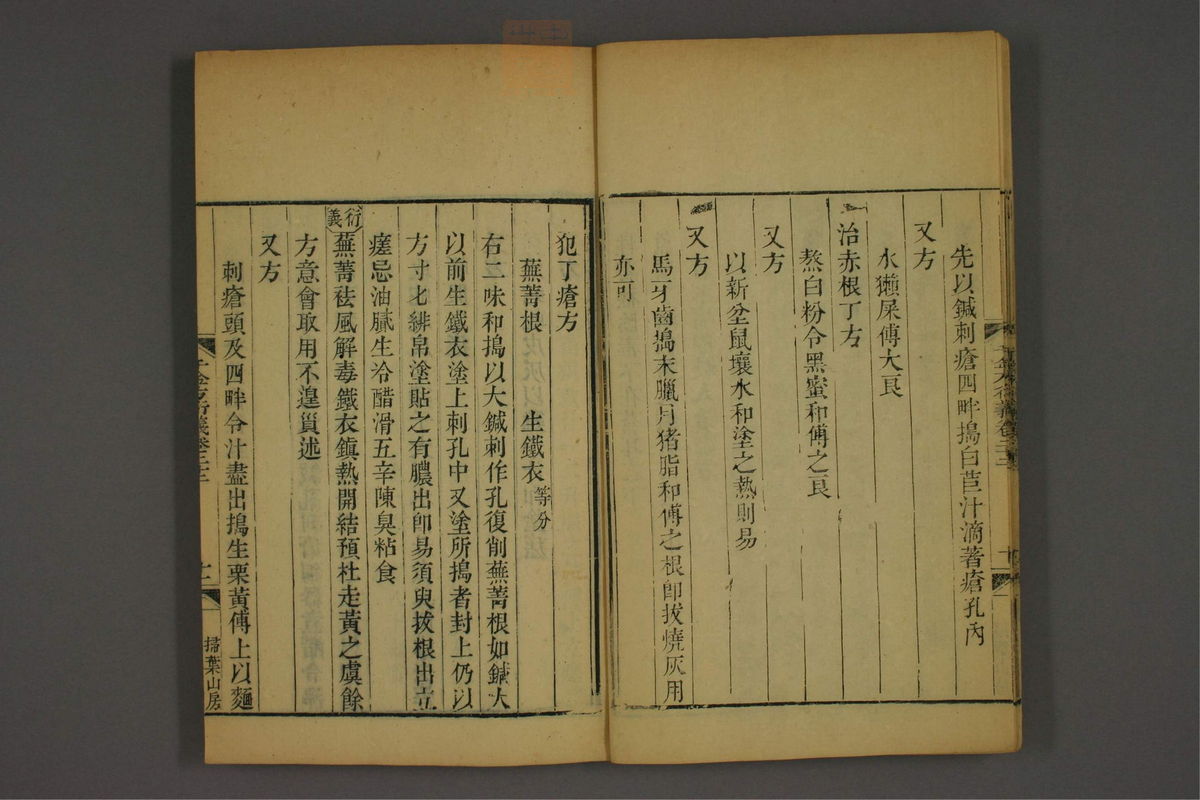 先以鍼刺瘡四畔搗白苣汁滴著瘡孔內
又方
水獺屎傅大良
治赤根丁方
熬白粉令黑蜜和傅之良
又方
以新坌鼠壤水和塗之熱則易
又方
馬牙齒搗末臘月猪脂和傅之根即拔燒灰用
亦可
犯丁瘡方
蕪菁根 生鐵衣等分
右二味和搗以大鍼刺作孔復削蕪菁根如鍼大
以前生鐵衣塗上刺孔中又塗所搗者封上仍以
方寸七緋帛塗貼之有膿出即易須臾拔根出立
瘥忌油膩生冷醋滑五辛陳臭粘食
衍義
蕪菁祛風解毒鐵衣鎮熱開結預杜走黃之虞餘
方意會取用不遑蕞述
又方
刺瘡頭及四畔令汁盡出搗生栗黃傅上以麵
千金方衍義卷二十二
掃葉山房